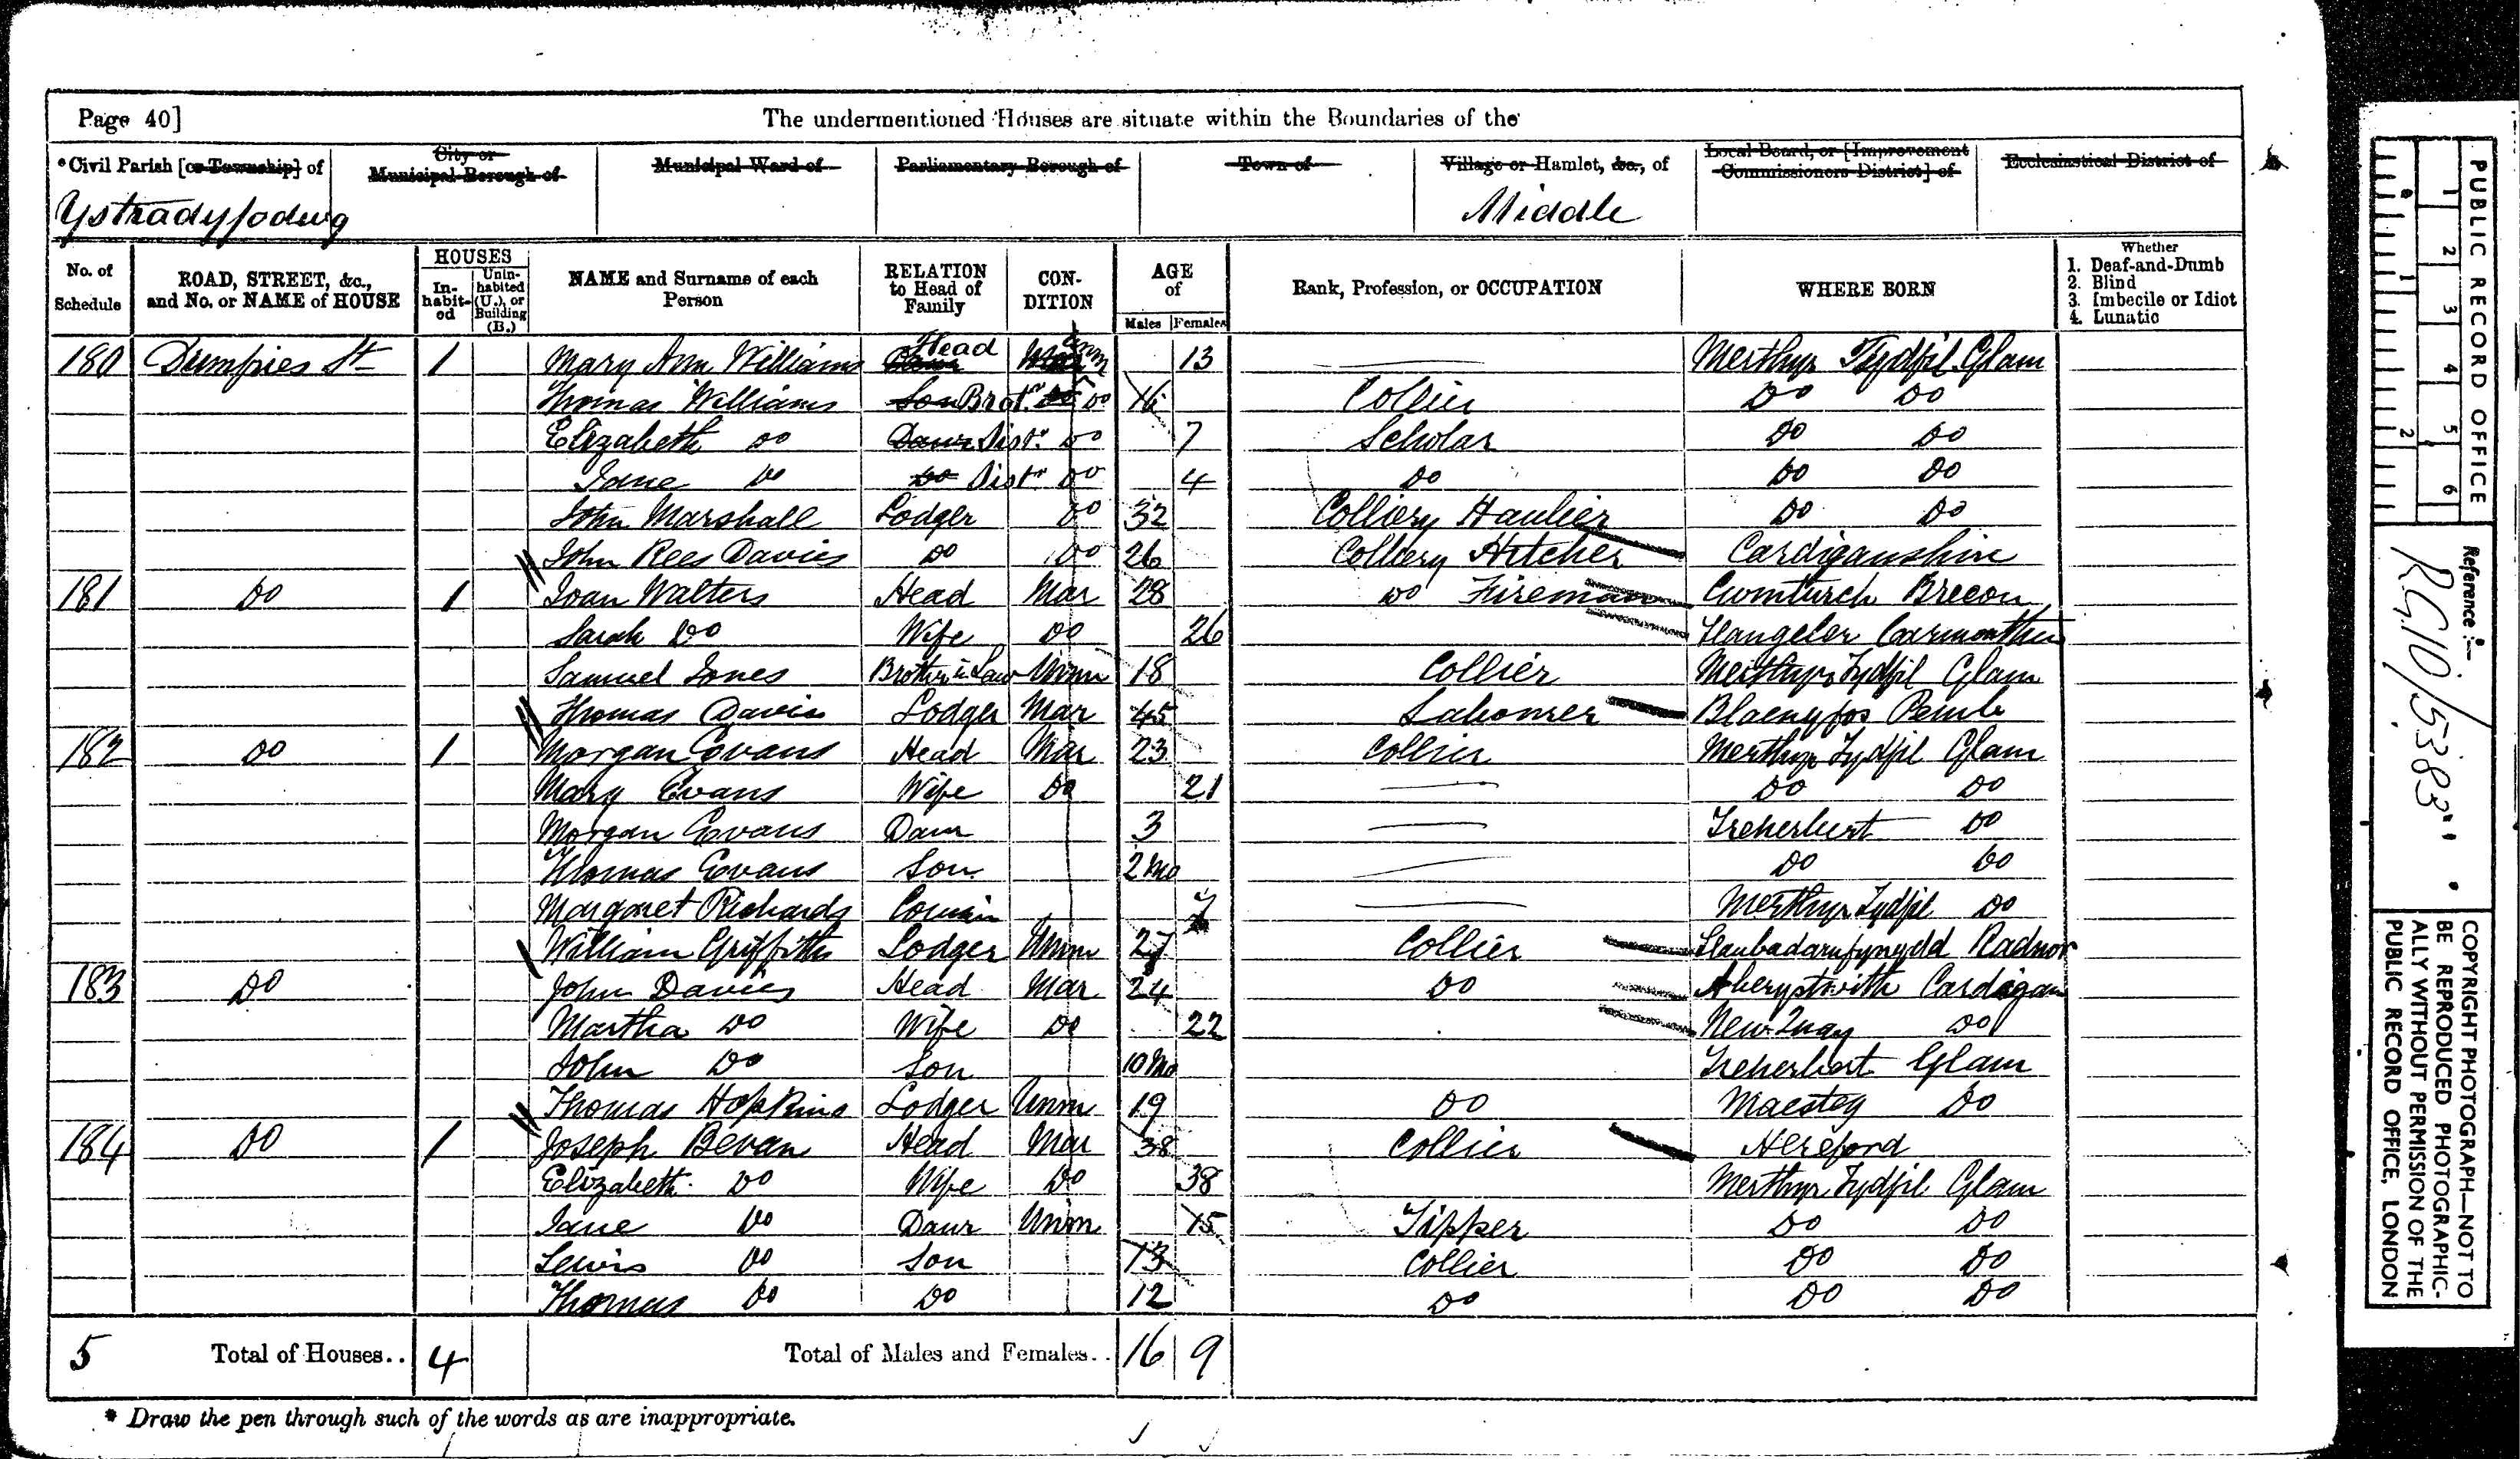 Page 40]
The undermentioned Houses are situate within the Boundaries of the
*Civil Parish [or Township] of
City or Municipal Borough of
Municipal Ward of
Parliamentary Borough of
Town of
Village or Hamlet, &c., of
Local Board, or [Improvement Commissioners District] of
Ecclesiastical District of
Ystradyfodwg
Middle
No. of Schedule
ROAD, STREET, &c., and No. or NAME of HOUSE
HOUSES
In-habit-ed
Unin-habited (U.), or Building (B.)
NAME and Surname of each Person
RELATION to Head of Family
CON-DITION
AGE of
Males Females
Rank, Profession, or OCCUPATION
WHERE BORN
Whether
1. Deaf-and-Dumb
2. Blind
3. Imbecile or Idiot
4. Lunatic
180 Dumfries St 1 Mary Ann Williams Head Unm 13 Merthyr Tydfil Glam
Thomas Williams Son Brot. Do Do 16 Collier Do Do
Elizabeth Do Daur Sist. Do 7 Scholar Do Do
Jane Do Do Sist Do 4 Do Do Do
John Marshall Lodger Do 32 Colliery Haulier Do Do
John Rees Davies Do Do 26 Colliery Hitcher Cardiganshire
181 Do 1 Ioan Walters Head Mar 28 Do Fireman Cwmturch Brecon
Sarah Do Wife Do 26 Llangeler Carmarthen
Samuel Jones Brother in Law Unm 18 Collier Merthyr Tydfil Glam
Thomas Davies Lodger Mar 45 Labourer Blaenyfos Pemb
182 Do 1 Morgan Evans Head Mar 23 Collier Merthyr Tydfil Glam
Mary Evans Wife Do 21 Do Do
Morgan Evans Daur 3 Treherbert Do
Thomas Evans Son 2 Mo Do Do
Margaret Richards Cousin 7 Merthyr Tydfil Do
William Griffiths Lodger Unm 27 Collier Llanbadarnfynydd Radnor
183 Do John Davies Head Mar 24 Do Aberystwith Cardigan
Martha Do Wife Do 22 New Quay Do
John Do Son 10 Mo Treherbert Glam
Thomas Hopkins Lodger Unm 19 Do Maesteg Do
184 Do 1 Joseph Bevan Head Mar 38 Collier Hereford
Elizabeth Do Wife Do 38 Merthyr Tydfil Glam
Jane Do Daur Unm 15 Tipper Do Do
Lewis Do Son 13 Collier Do Do
Thomas Do Do 12 Do Do Do
5 Total of Houses.. 4 Total of Males and Females.. 16 9
* Draw the pen through such of the words as are inappropriate.
PUBLIC RECORD OFFICE
1 2 3 4 5 6
1 2
Reference :-
RG 10/5383
COPYRIGHT PHOTOGRAPH—NOT TO BE REPRODUCED PHOTOGRAPHIC-ALLY WITHOUT PERMISSION OF THE PUBLIC RECORD OFFICE, LONDON